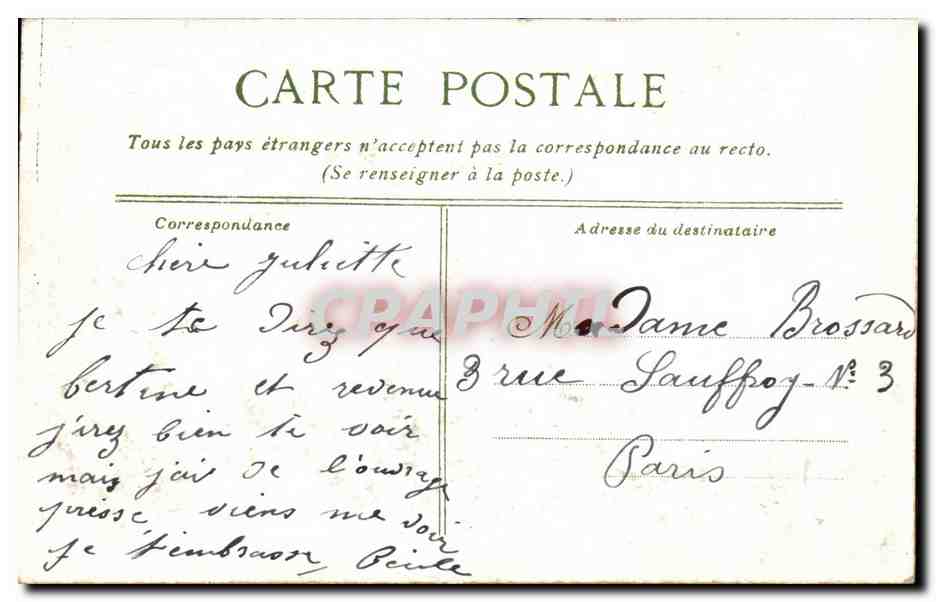 CARTE POSTALE
Tous les pays étrangers n'acceptent pas la correspondance au recto.
(Se renseigner à la poste.)
Correspondance
chère juliette
je te direz que
bertine et revenue
j'irez bien te voir
mais j'ai de l'ouvrage
presse, viens me voir
je t'embrasse,
Adresse du destinataire
Madame Brossard
3 rue Sauffroy - No 3
Paris
CRAPHIL